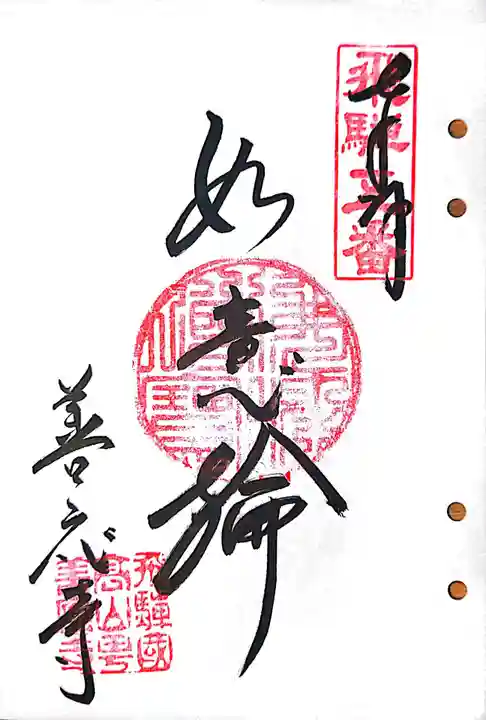 奉拝
飛騨五番
如意輪
善応寺
飛騨國
高山
善應寺